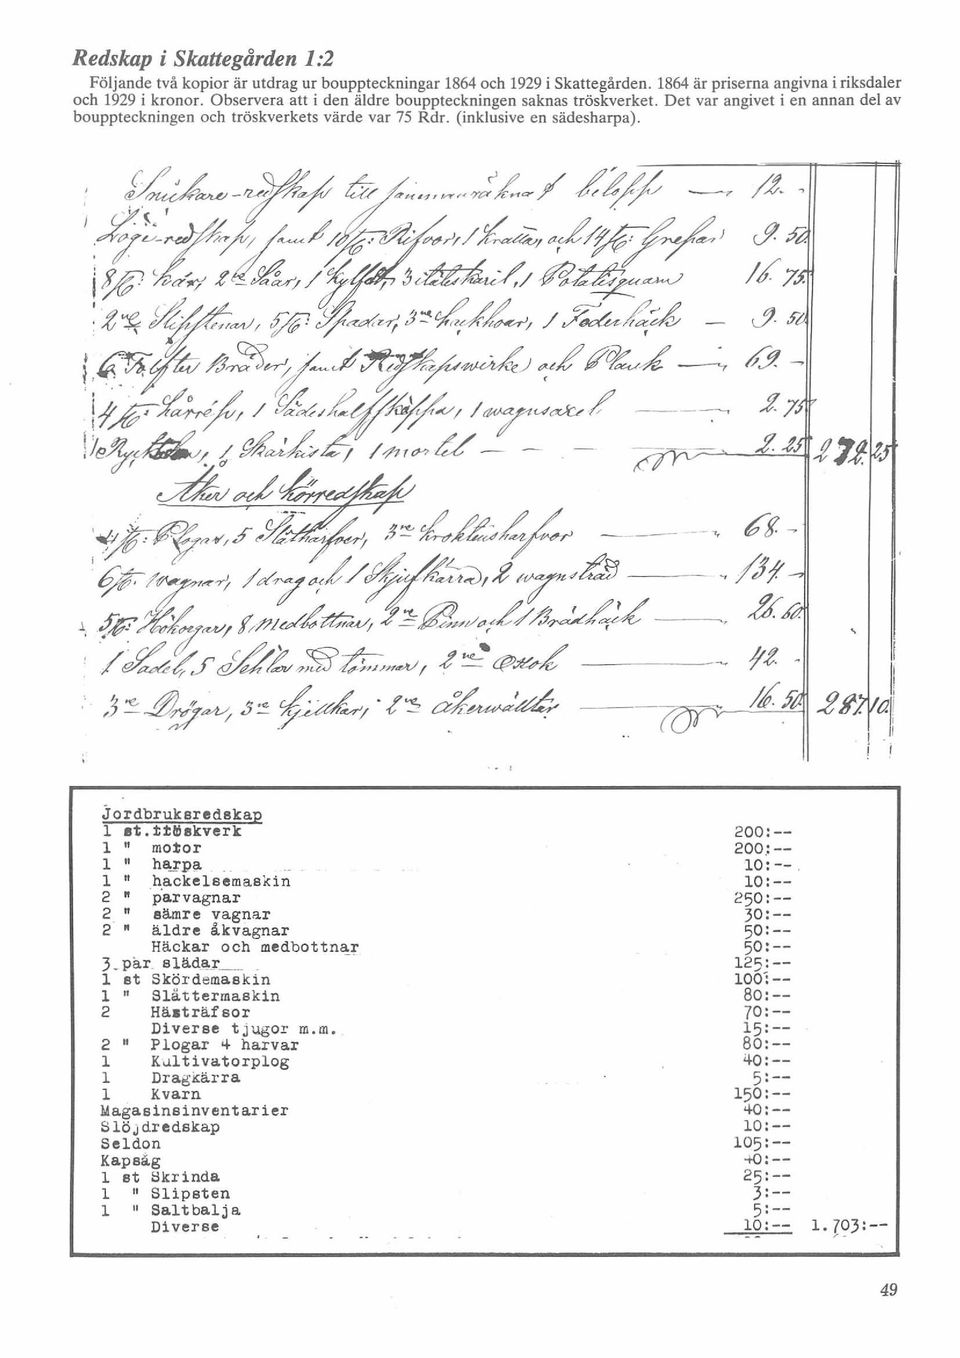 Redskap i Skattegården 1:2
Följande två kopior är utdrag ur bouppteckningar 1864 och 1929 i Skattegården. 1864 är priserna angivna i riksdaler
och 1929 i kronor. Observera att i den äldre bouppteckningen saknas tröskverket. Det var angivet i en annan del av
bouppteckningen och tröskverkets värde var 75 Rdr. (inklusive en sädesharpa).
Snickare-redskap till sammanräknat belopp — " 12. -
Loge-redskap, samt 10 st: Rifvor, 1 kratta, och 14 st: Grepar 9. 50.
8 st: 2ne Såar, 1 3 1 Potatisquarn 16. 75.
2ne Slipstenar, 5 st: Spadar, 3ne hackhoar, 1 Foderhäck — 9. 50
6 Tolfter Bräder, samt Redskapswirke och Plank — " 69. -
4 st: 1 1 wagnsaxel — " 2. 75
1 1 mortel - - - 2. 25 272. 25
Åker och Körredskap
4 st: Plogar, 5 Slätharfvor, 3ne krokteinsharfvor — " 68. -
6 st. wagnar, 1 drag och 1 Skjutkärra, 2 — " 134. -
5 st: Hökorgar, 8 Medbottnar, 2ne Pinn och 1 Brädhäck — 26. 60.
1 Sadel, 5 Sehlar med tömmar, 2ne Oxok — " 42. -
3ne Drögar, 3ne 2ne åkerwältar 16. 50. 287. 10.
Jordbruksredskap
1 st. ttöskverk 200:--
1 " motor 200:--
1 " harpa 10:--
1 " hackelsemaskin 10:--
2 " parvagnar 250:--
2 " sämre vagnar 30:--
2 " äldre åkvagnar 50:--
Häckar och medbottnar 50:--
3 par slädar 125:--
1 st Skördemaskin 100:--
1 " Slåttermaskin 80:--
2 Hästräfsor 70:--
Diverse tjugor m.m. 15:--
2 " Plogar 4 harvar 80:--
1 Kultivatorplog 40:--
1 Dragkärra 5:--
1 Kvarn 150:--
Magasinsinventarier 40:--
Slöjdredskap 10:--
Seldon 105:--
Kapsåg 40:--
1 st Skrinda 25:--
1 " Slipsten 3:--
1 " Saltbalja 5:--
Diverse 10:-- 1.703:--
49